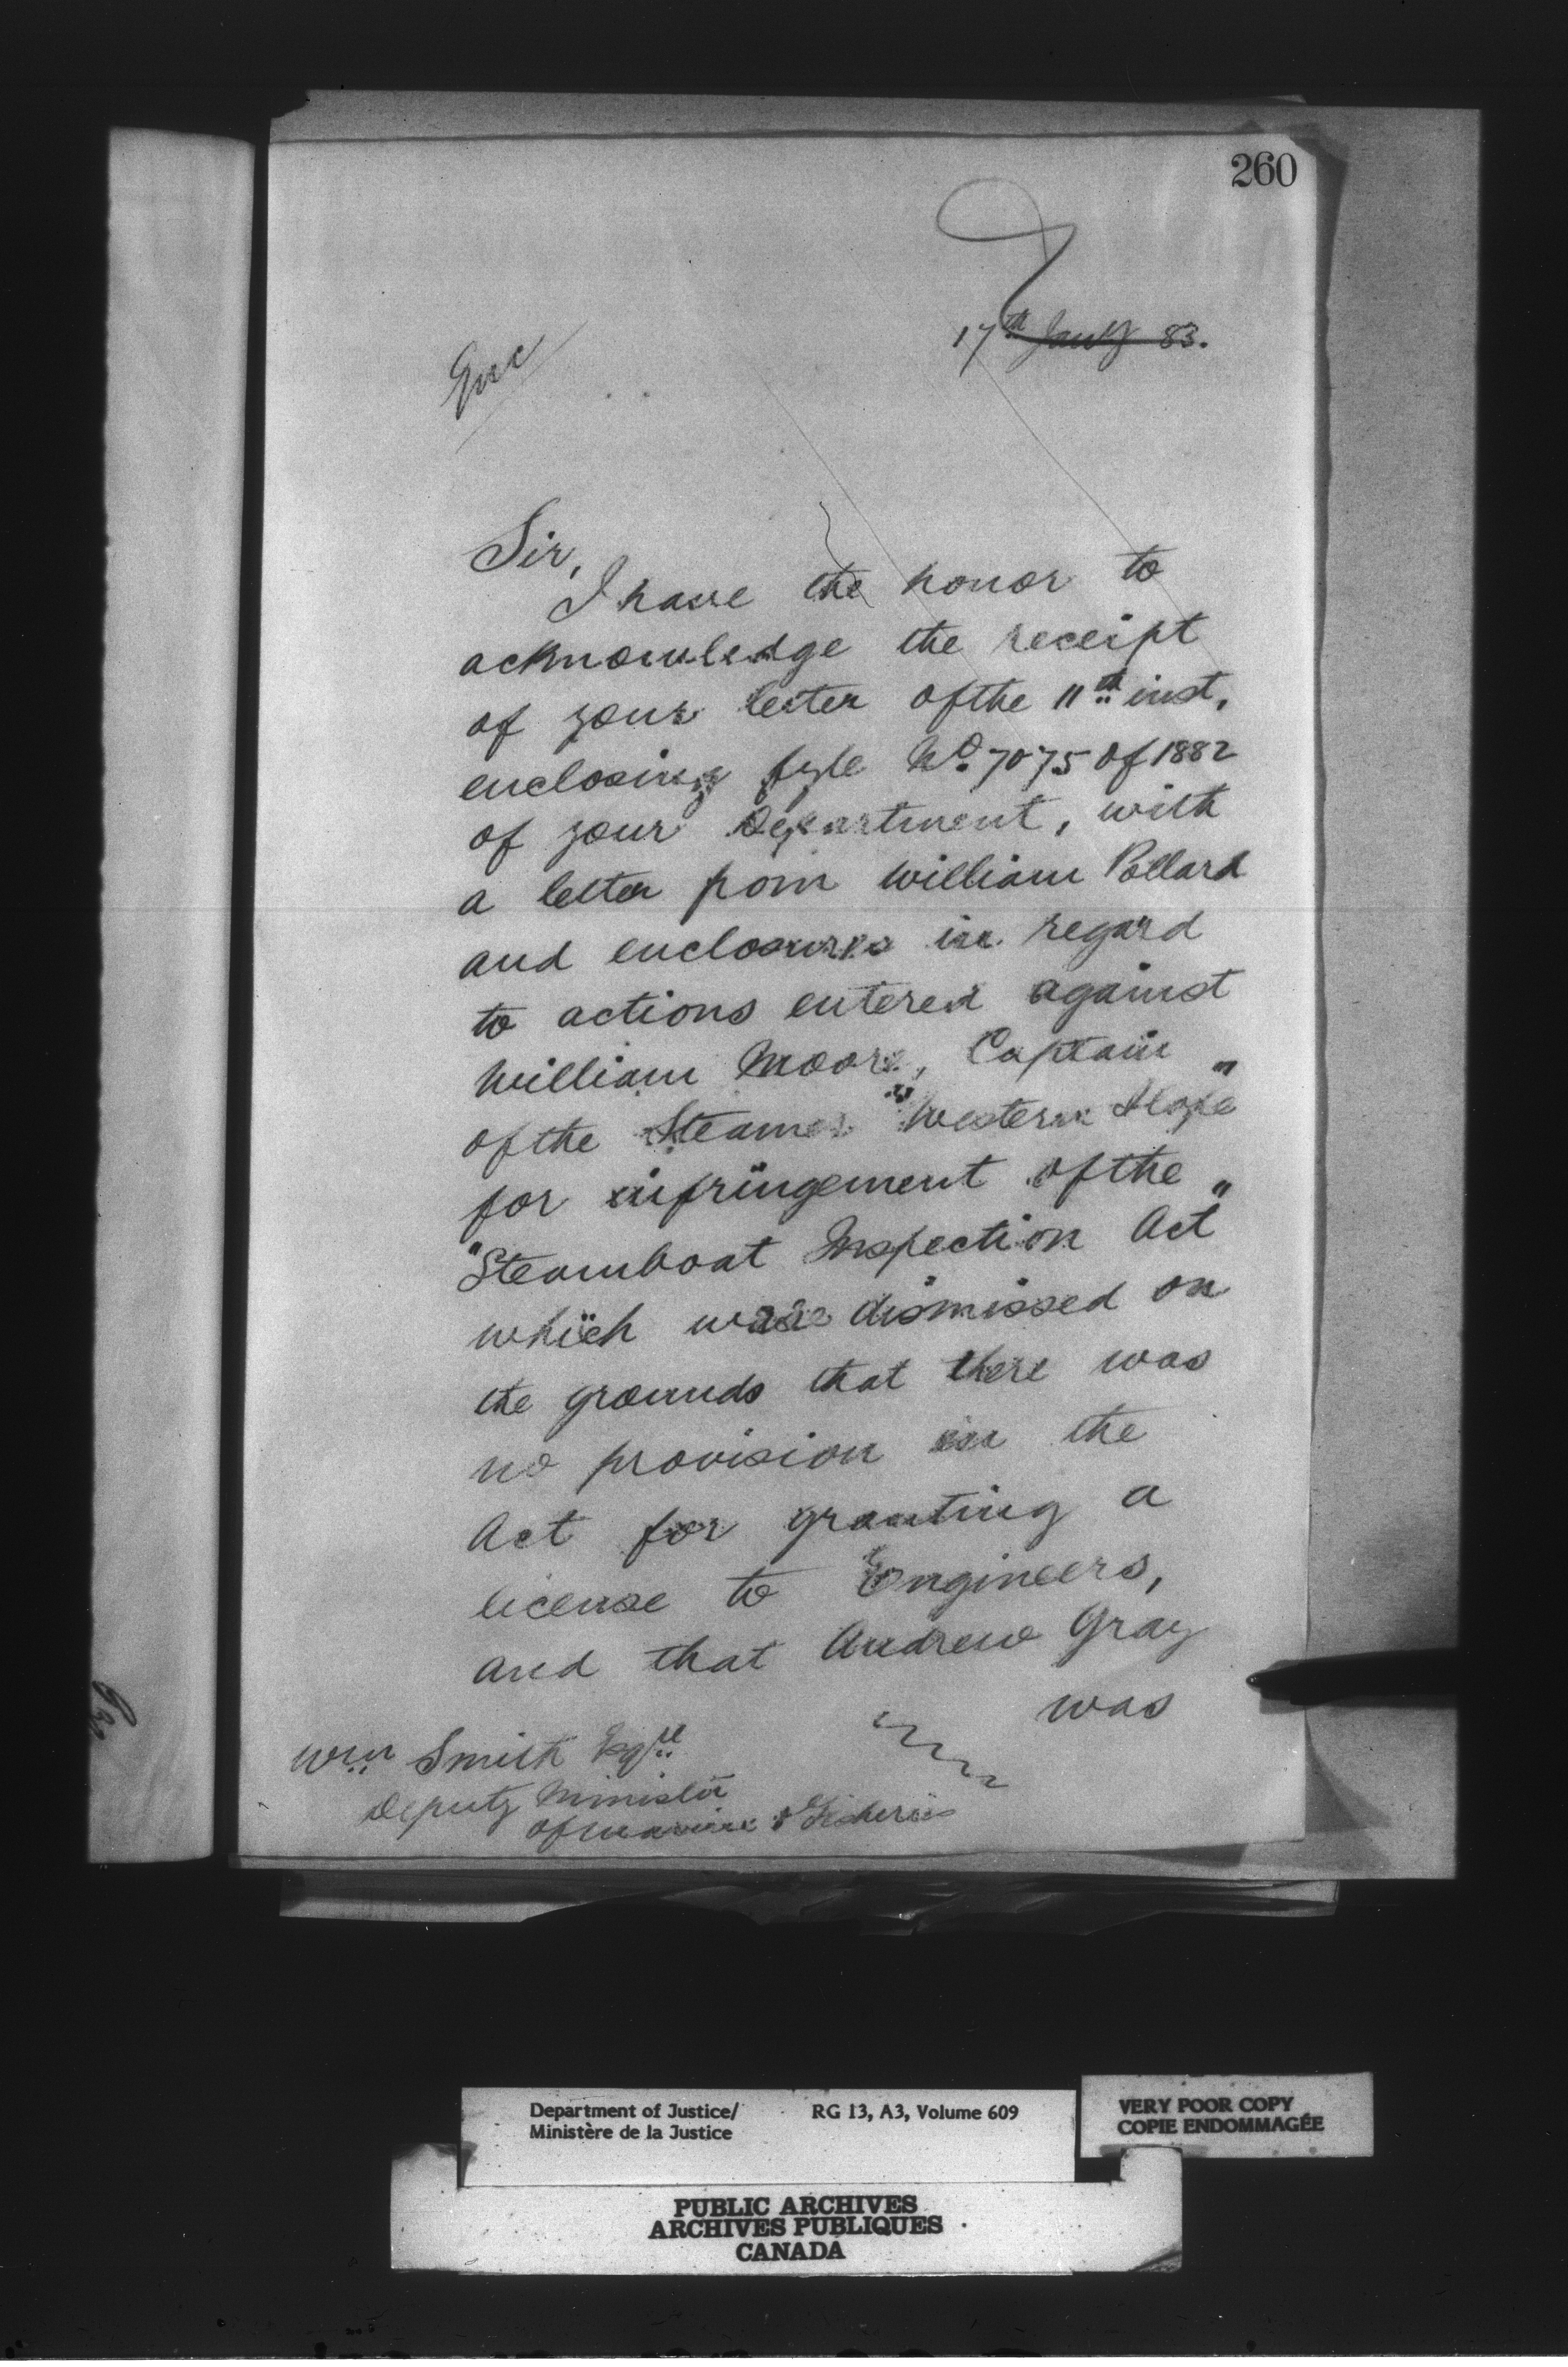 260
17th Jany 83.
Enc
Sir,
I have the honor to
acknowledge the receipt
of your letter of the 11th inst,
enclosing fyle No. 7075 of 1882
of your Department, with
a letter from William Pollard
and enclosures in regard
to actions entered against
William Moore, Captain
of the Steamer "Western Slope"
for infringement of the
"Steamboat Inspection Act"
which were dismissed on
the grounds that there was
no provision in the
Act for granting a
license to Engineers,
and that Andrew Gray
was
Wm Smith Esqre
Deputy Minister
of Marine & Fisheries
Department of Justice/ RG 13, A3, Volume 609
Ministère de la Justice
VERY POOR COPY
COPIE ENDOMMAGÉE
PUBLIC ARCHIVES
ARCHIVES PUBLIQUES
CANADA